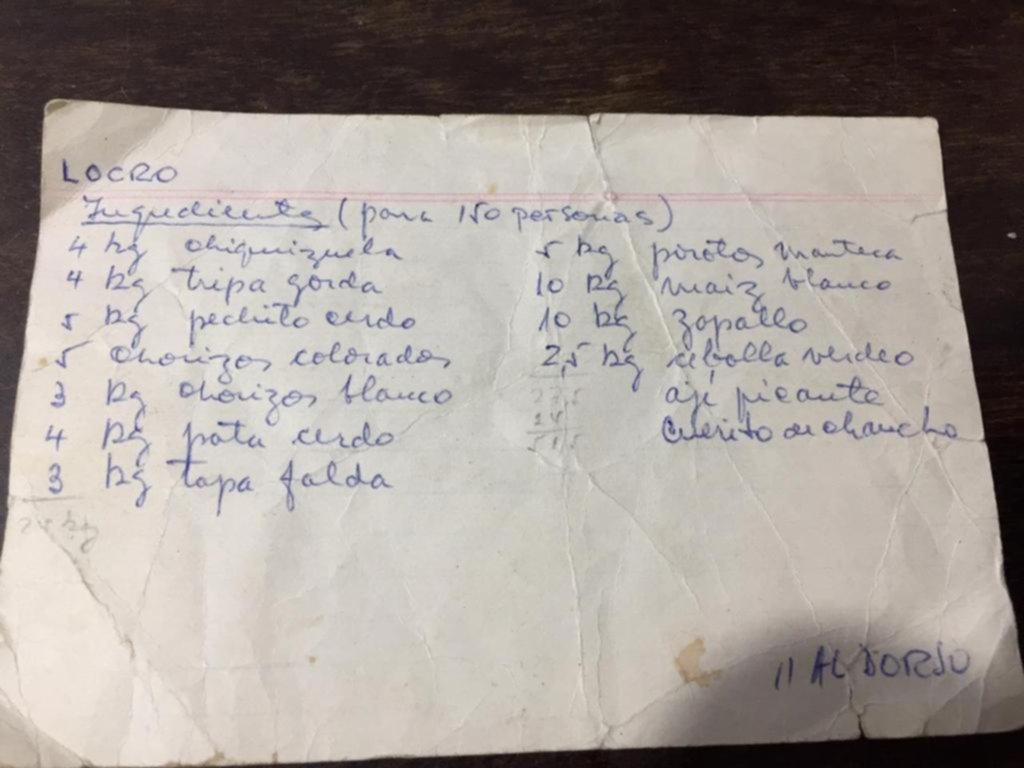 LOCRO
Ingredientes (para 150 personas)
4 kg chiquizuela
4 kg tripa gorda
5 kg pechito cerdo
5 chorizos colorados
3 kg chorizos blanco
4 kg pata cerdo
3 kg tapa falda
5 kg porotos manteca
10 kg maiz blanco
10 kg zapallo
2,5 kg cebolla verdeo
27,5
ají picante
cuerito de chancho
51,5
// AL DORSO